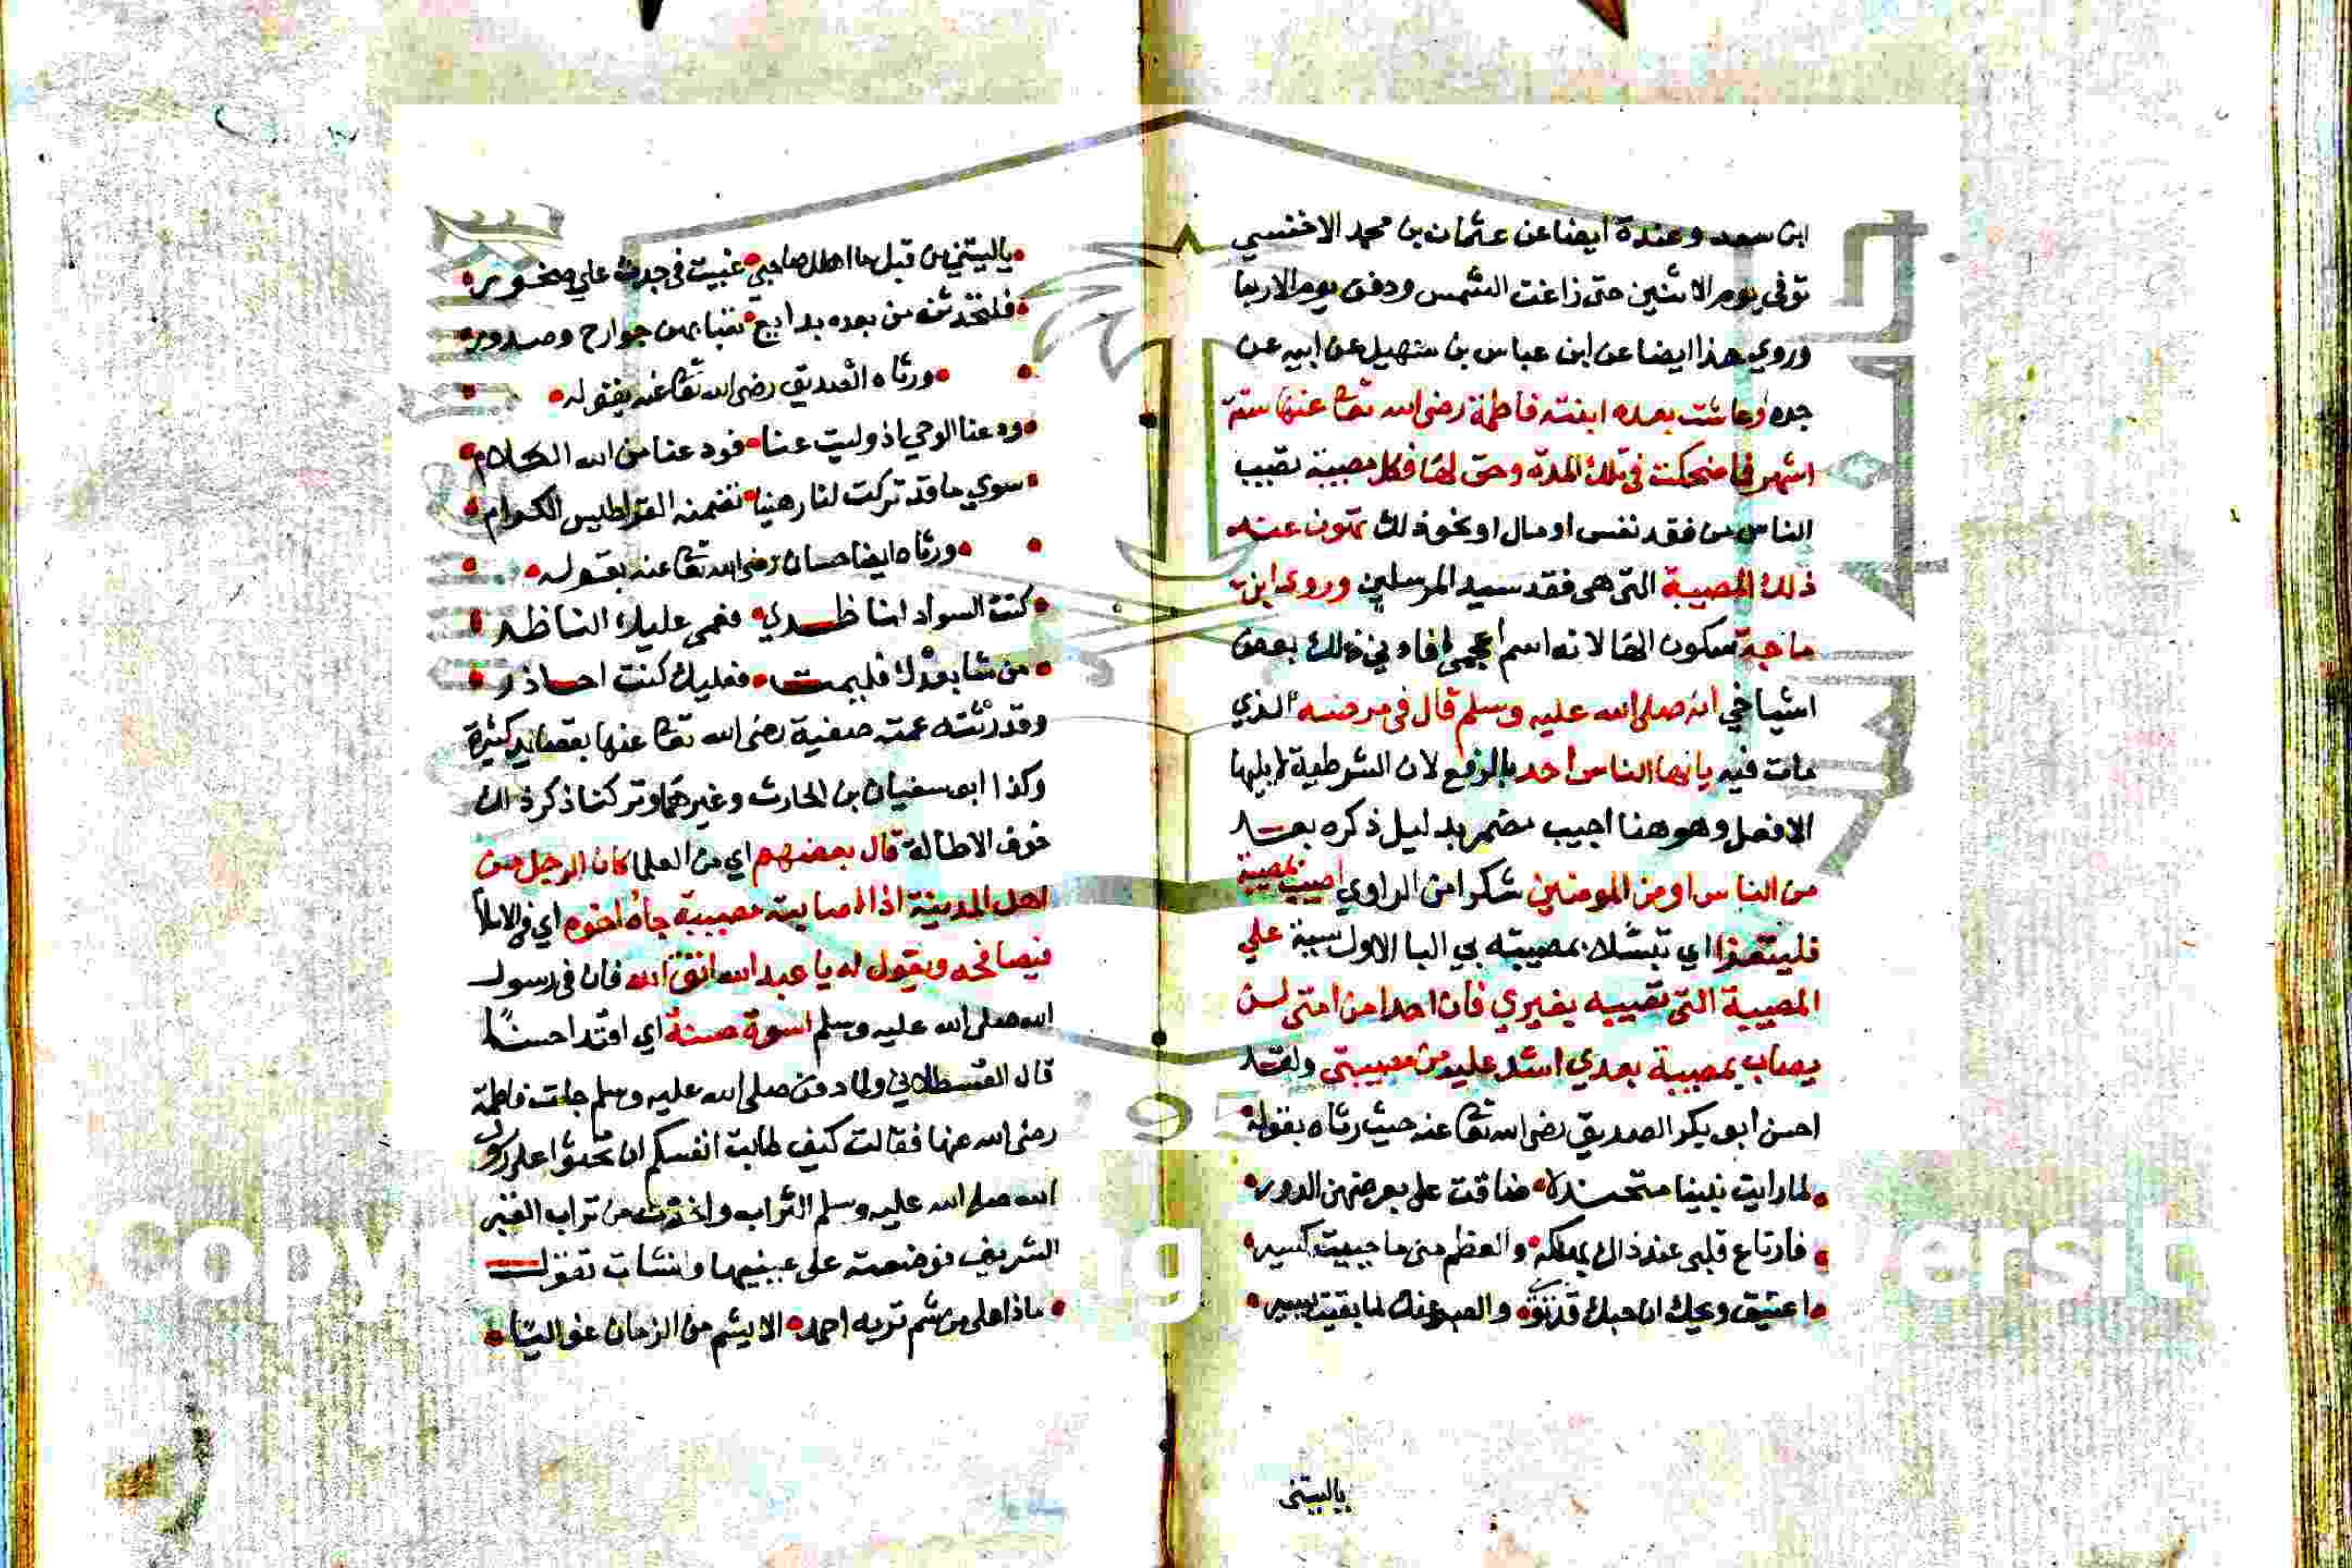 ابن سعد وعنده ايضا عن عثمان بن محمد الاخنسي
توفي يوم الاثنين حتى زاغت الشمس ودفن يوم الاربعا
وروي هذا ايضا عن ابن عباس بن سهيل عن ابيه عن
جده وعاشت بعده ابنته فاطمة رضى الله تعا عنها ستة
اشهر فما ضحكت في تلك المدة وحق لها فكل مصيبة تصيب
الناس من فقد نفس او مال او نحو ذلك تهون عند
ذلك المصيبة التى هى فقد سيد المرسلين وروى ابن
ماجة بسكون الها لانه اسم اعجمى
اشياخي انه صلى الله عليه وسلم قال فى مرضه الذي
مات فيه يا ايها الناس احد بالرفع لان الشرطية لا يليها
الا فعل وهو هنا اجيب مضمر بدليل ذكره بعد
من الناس او من المومنين شكوا من الراوي اصيب بمصيبة
فليتعزا اي بمصيبته بي البا الاولى سببية علي
المصيبة التى تصيبه بغيري فان احدا من امتى لن
يصاب بمصيبة بعدي اشد عليه من مصيبتى ولقد
احسن ابو بكر الصديق رضى الله تعا عنه حيث رثاه بقوله
لما رايت نبينا متجندلا ضاقت على بعرضهن الدور
فارتاع قلبى عند ذاك بملكه والعظم منى ما حييت كسير
اعتيق ويحك ان حبك قد ثوى والصبر عنك لما بقيت يسير
ياليتنى
ياليتني من قبل مااهلك صاحبي غيبت فى جدث علي صخور
فلتحدثن من بعده بدايع تعيا بهن جوارح وصدور
ورثاه الصديق رضى الله تعا عنه بقوله
ودعنا الوحي اذ وليت عنا فودعنا من الله الكلام
سوي ما قد تركت لنا رهنيا تضمنه القراطيس الكرام
ورثاه ايضا حسان رضى الله تعا عنه بقوله
كنت السواد لناظري فعمى عليك الناظر
من شا بعدك فليمت فعليك كنت احاذر
وقد رثته عمته صفية رضى الله تعا عنها بقصايد كثيرة
وكذا ابو سفيان بن الحارث وغيرهما وتركنا ذكر ذلك
خوف الاطالة قال بعضهم اي من العلما كان الرجل من
اهل المدينة اذا اصابته مصيبة جاه اخوه اي فى الاسلام
فيصافحه ويقول له يا عبد الله اتق الله فان فى رسول
الله صلى الله عليه وسلم اسوة حسنة اي اقتدا حسنا
قال القسطلاني ولما دفن صلى الله عليه وسلم جات فاطمة
رضى الله عنها فقالت كيف طابت انفسكم ان تحثوا على رسول
الله صلى الله عليه وسلم التراب واخذت من تراب القبر
الشريف فوضعته على عينيها وانشات تقول
ماذا على من شم تربه احمد الا يشم من الزمان غواليا